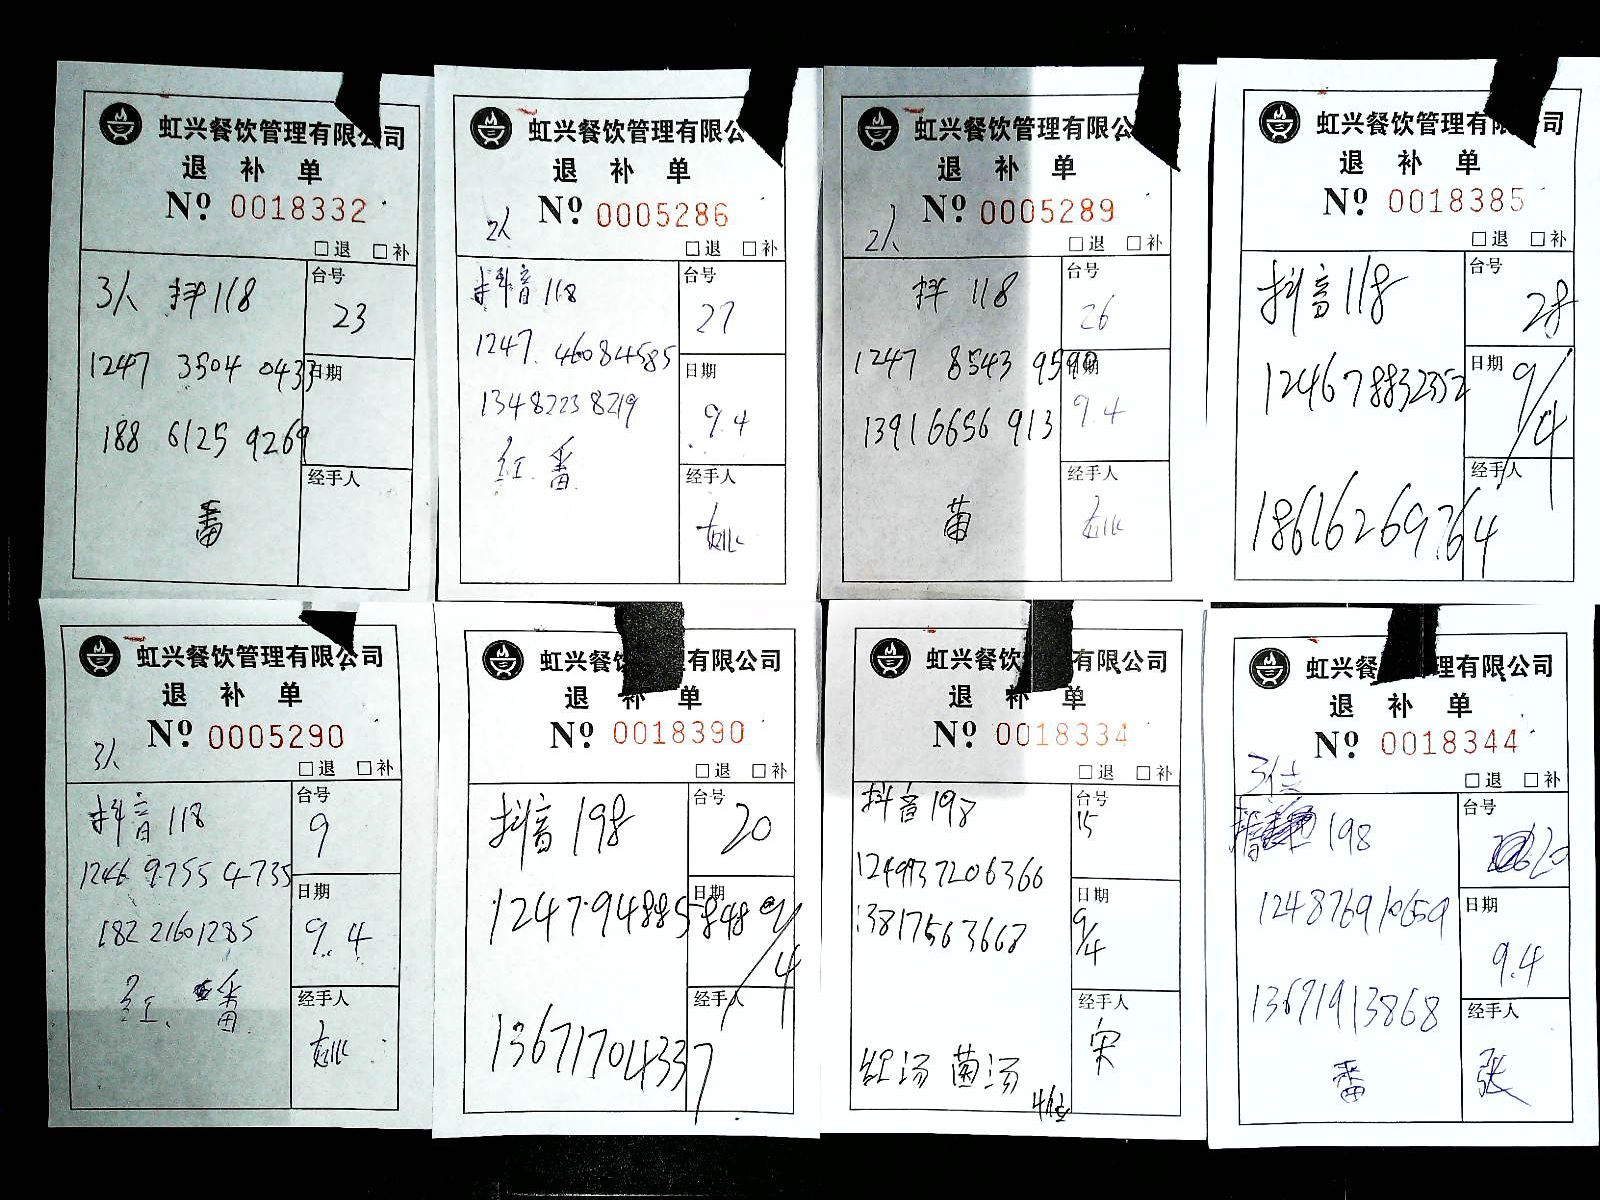 虹兴餐饮管理有限公司
退 补 单
Nº 0018332
□退 □补
3人 抖118
台号
23
1247 3504 0433
日期
188 6125 9269
经手人
番
虹兴餐饮管理有限公
退 补 单
2人
Nº 0005286
□退 □补
抖音118
台号
27
1247.46084585
日期
13482238219
9.4
红.番
经手人
虹兴餐饮管理有限公
退 补 单
2人
Nº 0005289
□退 □补
抖 118
台号
26
1247 8543 9590
日期
13916656913
9.4
经手人
菌
虹兴餐饮管理有限公司
退 补 单
Nº 0018385
□退 □补
抖音118
台号
28
124678832352
日期
9/4
经手人
18616269764
虹兴餐饮管理有限公司
退 补 单
3人
Nº 0005290
□退 □补
抖音118
台号
9
1246 9755 4735
日期
18221601285
9.4
红.番
经手人
虹兴餐 理有限公司
退 补 单
Nº 0018390
□退 □补
抖音198
台号
20
124794885848
日期
9/4
经手人
13671704337
虹兴餐饮 有限公司
退 补 单
Nº 0018334
□退 □补
抖音198
台号
15
1249137206366
日期
13817563668
9/4
经手人
宋
红汤 菌汤
4位
虹兴餐 理有限公司
退 补 单
Nº 0018344
3位
□退 □补
198
台号
124876910659
日期
9.4
13671913868
经手人
番
张